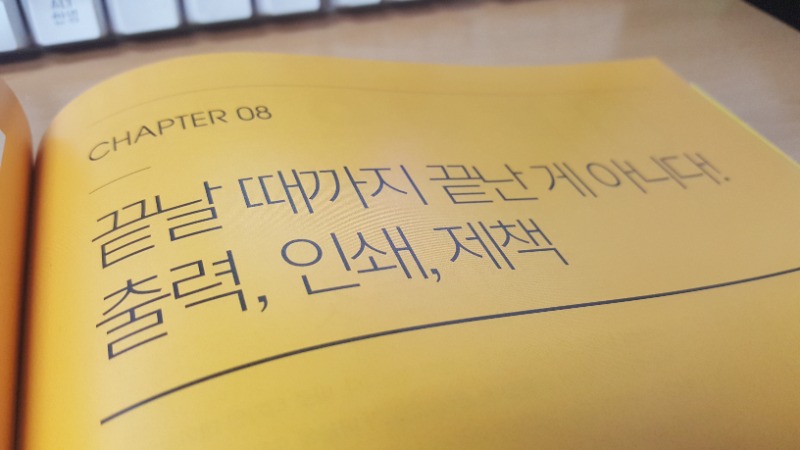 CHAPTER 08
끝날 때까지 끝난 게 아니다!
출력, 인쇄, 제책